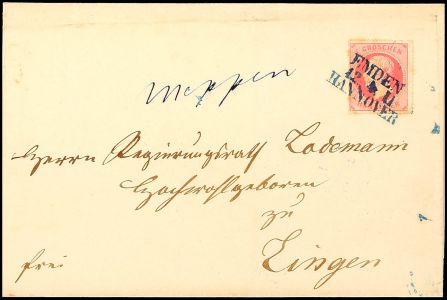 GROSCHEN
EMDEN
12 4 11
HANNOVER
Meppen
Herrn Regierungsrath Lodemann
Hochwohlgeboren
zu
Lingen
frei